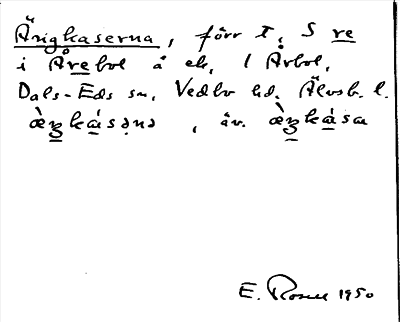 Ängkaserna, förr t, S re
i Årebol å ek, l Årbol,
Dals-Eds sn, Vedbo hd. Älvsb. l.
, äv.
E. Rosell 1950